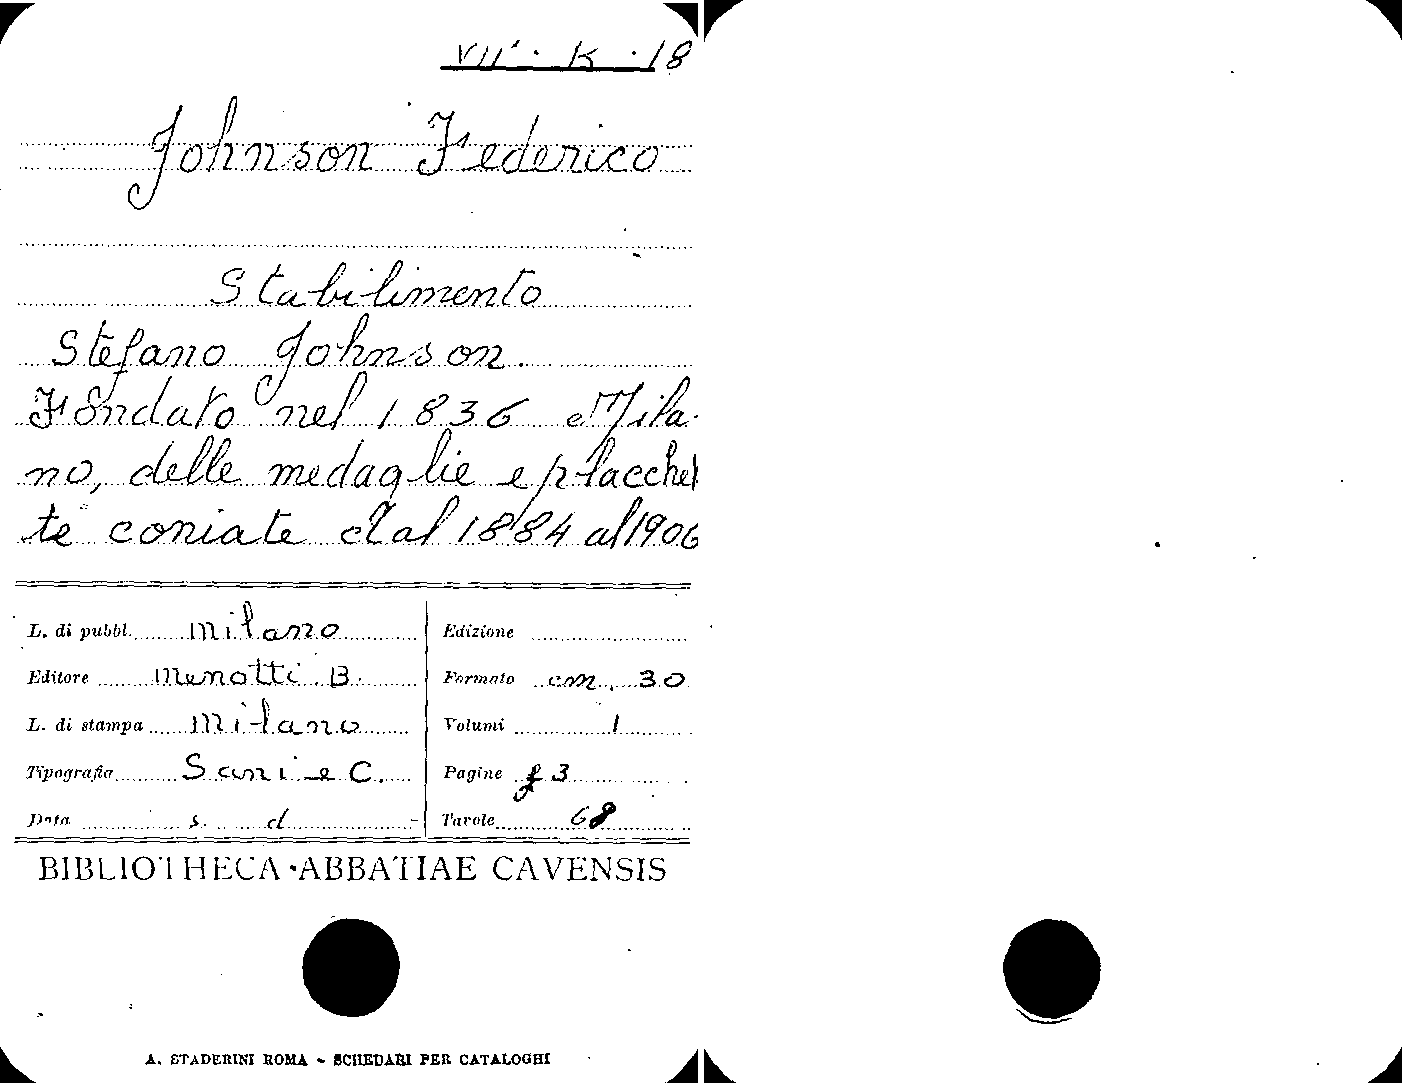 VII · K · 18
Johnson Federico
Stabilimento
Stefano Johnson.
Fondato nel 1836 Mila-
no, delle medaglie e placchet
te coniate dal 1884 al 1906
L. di pubbl. Milano
Editore Menotti B.
L. di stampa Milano
Tipografia Sani e C.
Data s. d
Edizione
Formato cm. 30
Volumi 1
Pagine f 3
Tavole 68
BIBLIOTHECA · ABBATIAE CAVENSIS
A. STADERINI ROMA - SCHEDARI PER CATALOGHI